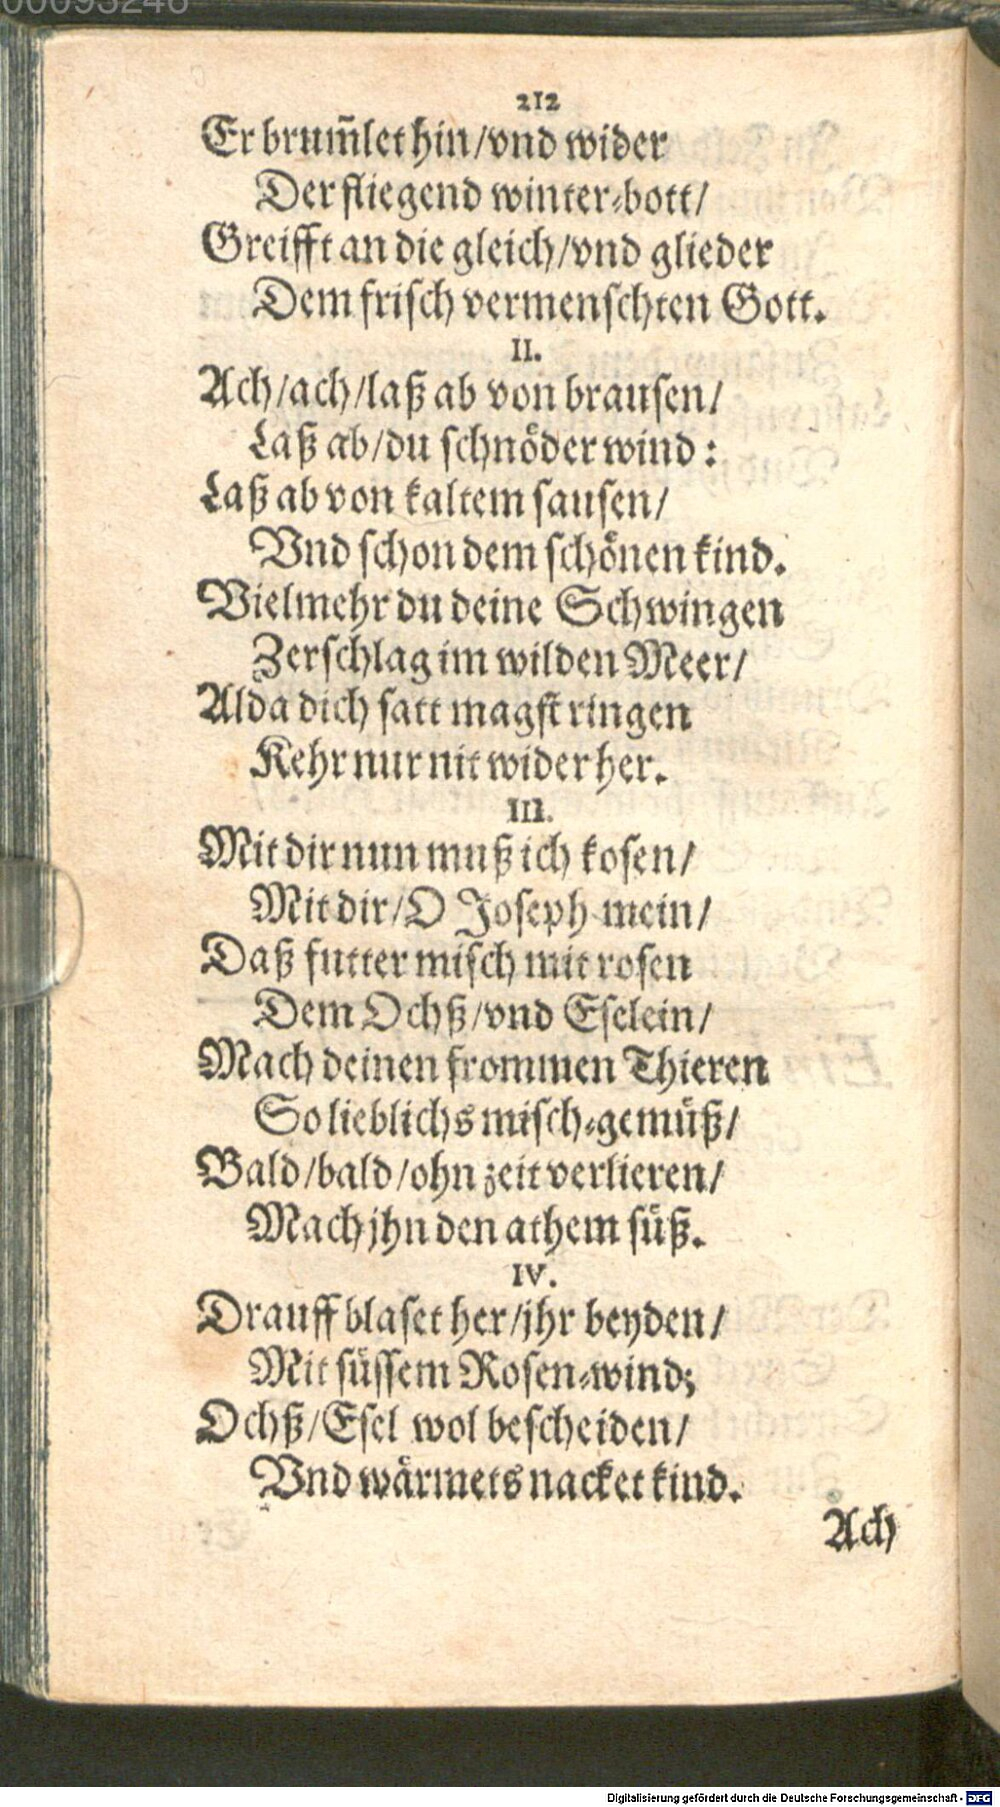 00093246
212
Er brum̃let hin/vnd wider
Der fliegend winter-bott/
Greifft an die gleich/vnd glieder
Dem frisch vermenschten Gott.
II.
Ach/ach/laß ab von brausen/
Laß ab/du schnöder wind:
Laß ab von kaltem sausen/
Vnd schon dem schönen kind.
Vielmehr du deine Schwingen
Zerschlag im wilden Meer/
Alda dich satt magst ringen
Kehr nur nit wider her.
III.
Mit dir nun muß ich kosen/
Mit dir/O Joseph mein/
Daß futter misch mit rosen
Dem Ochß/vnd Eselein/
Mach deinen frommen Thieren
So lieblichs misch-gemüß/
Bald/bald/ohn zeit verlieren/
Mach jhn den athem süß.
IV.
Drauff blaset her/jhr beyden/
Mit süssem Rosen-wind;
Ochß/Esel wol bescheiden/
Vnd wärmets nacket kind.
Ach
Digitalisierung gefördert durch die Deutsche Forschungsgemeinschaft - DFG